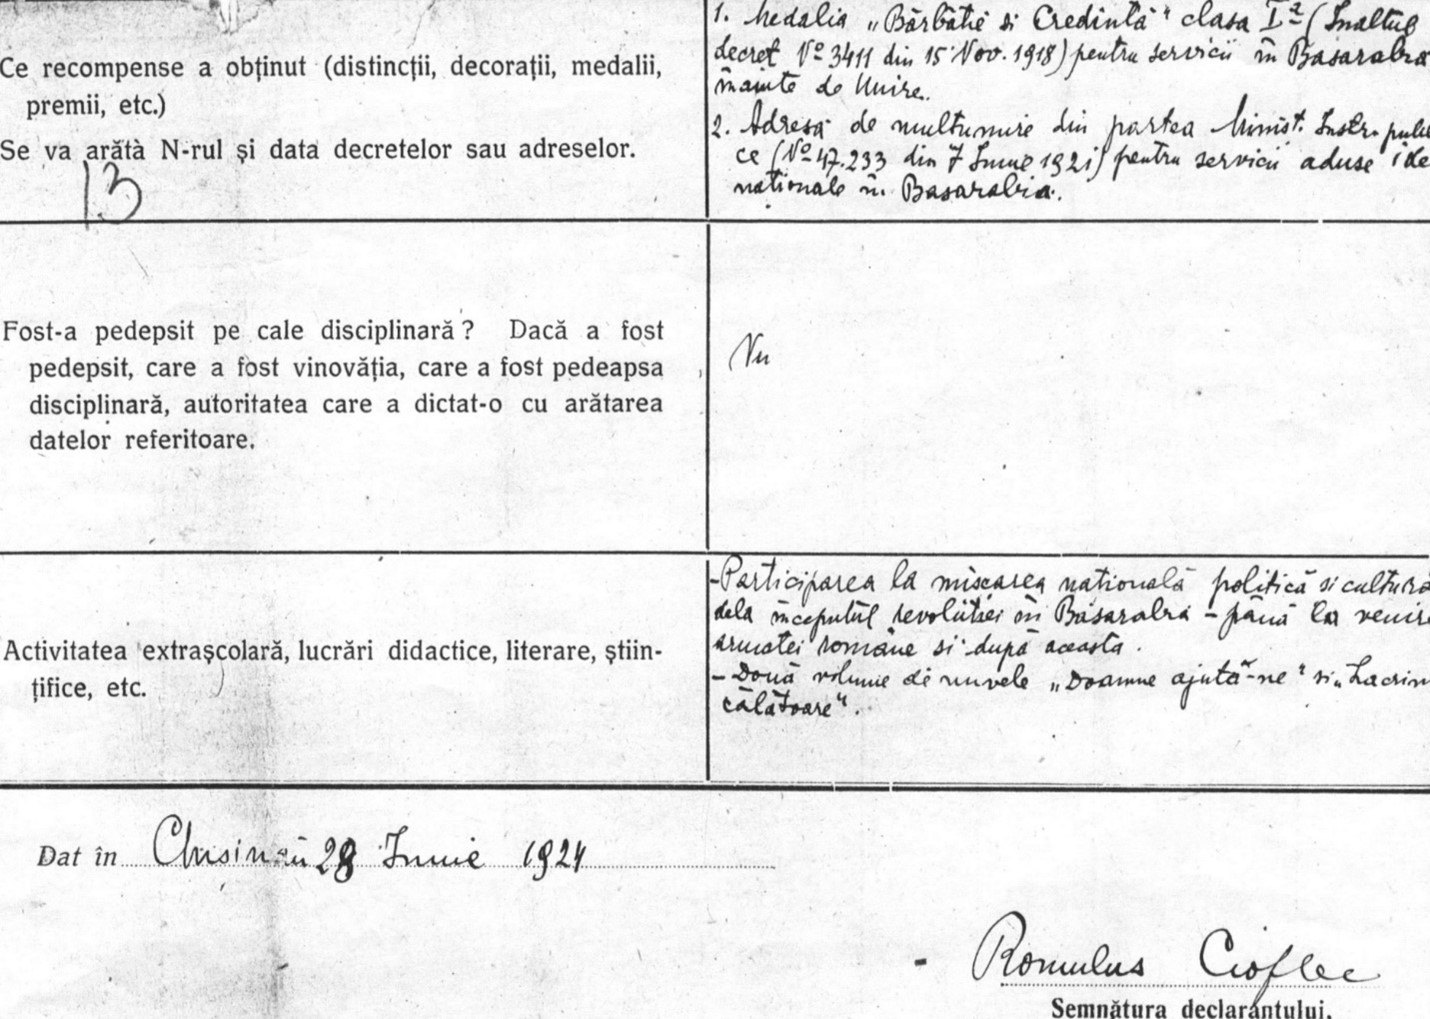 Ce recompense a obținut (distincții, decorații, medalii,
premii, etc.)
Se va arătà N-rul și data decretelor sau adreselor.
13
1. Medalia „Bărbăție si Credință" clasa I-a (Înaltul
decret Nº 3411 din 15 Nov. 1918) pentru servicii în Basarabia
înainte de Unire.
2. Adresă de multumire din partea Minist. Instr. publi
ce (Nº 47.233 din 7 Iunie 1921) pentru servicii aduse ide
naționale în Basarabia.
Fost-a pedepsit pe cale disciplinară? Dacă a fost
pedepsit, care a fost vinovăția, care a fost pedeapsa
disciplinară, autoritatea care a dictat-o cu arătarea
datelor referitoare.
Nu
Activitatea extrașcolară, lucrări didactice, literare, știin-
țifice, etc.
-Participarea la mișcarea națională politică si cultura
dela începutul revoluției în Basarabia - până la venire
armatei române si după aceasta.
- Două volume de nuvele „Doamne ajută-ne" si „Lacrim
călătoare".
Dat în Chisinău 28 Iunie 1924
- Romulus Cioflec
Semnătura declarantului.